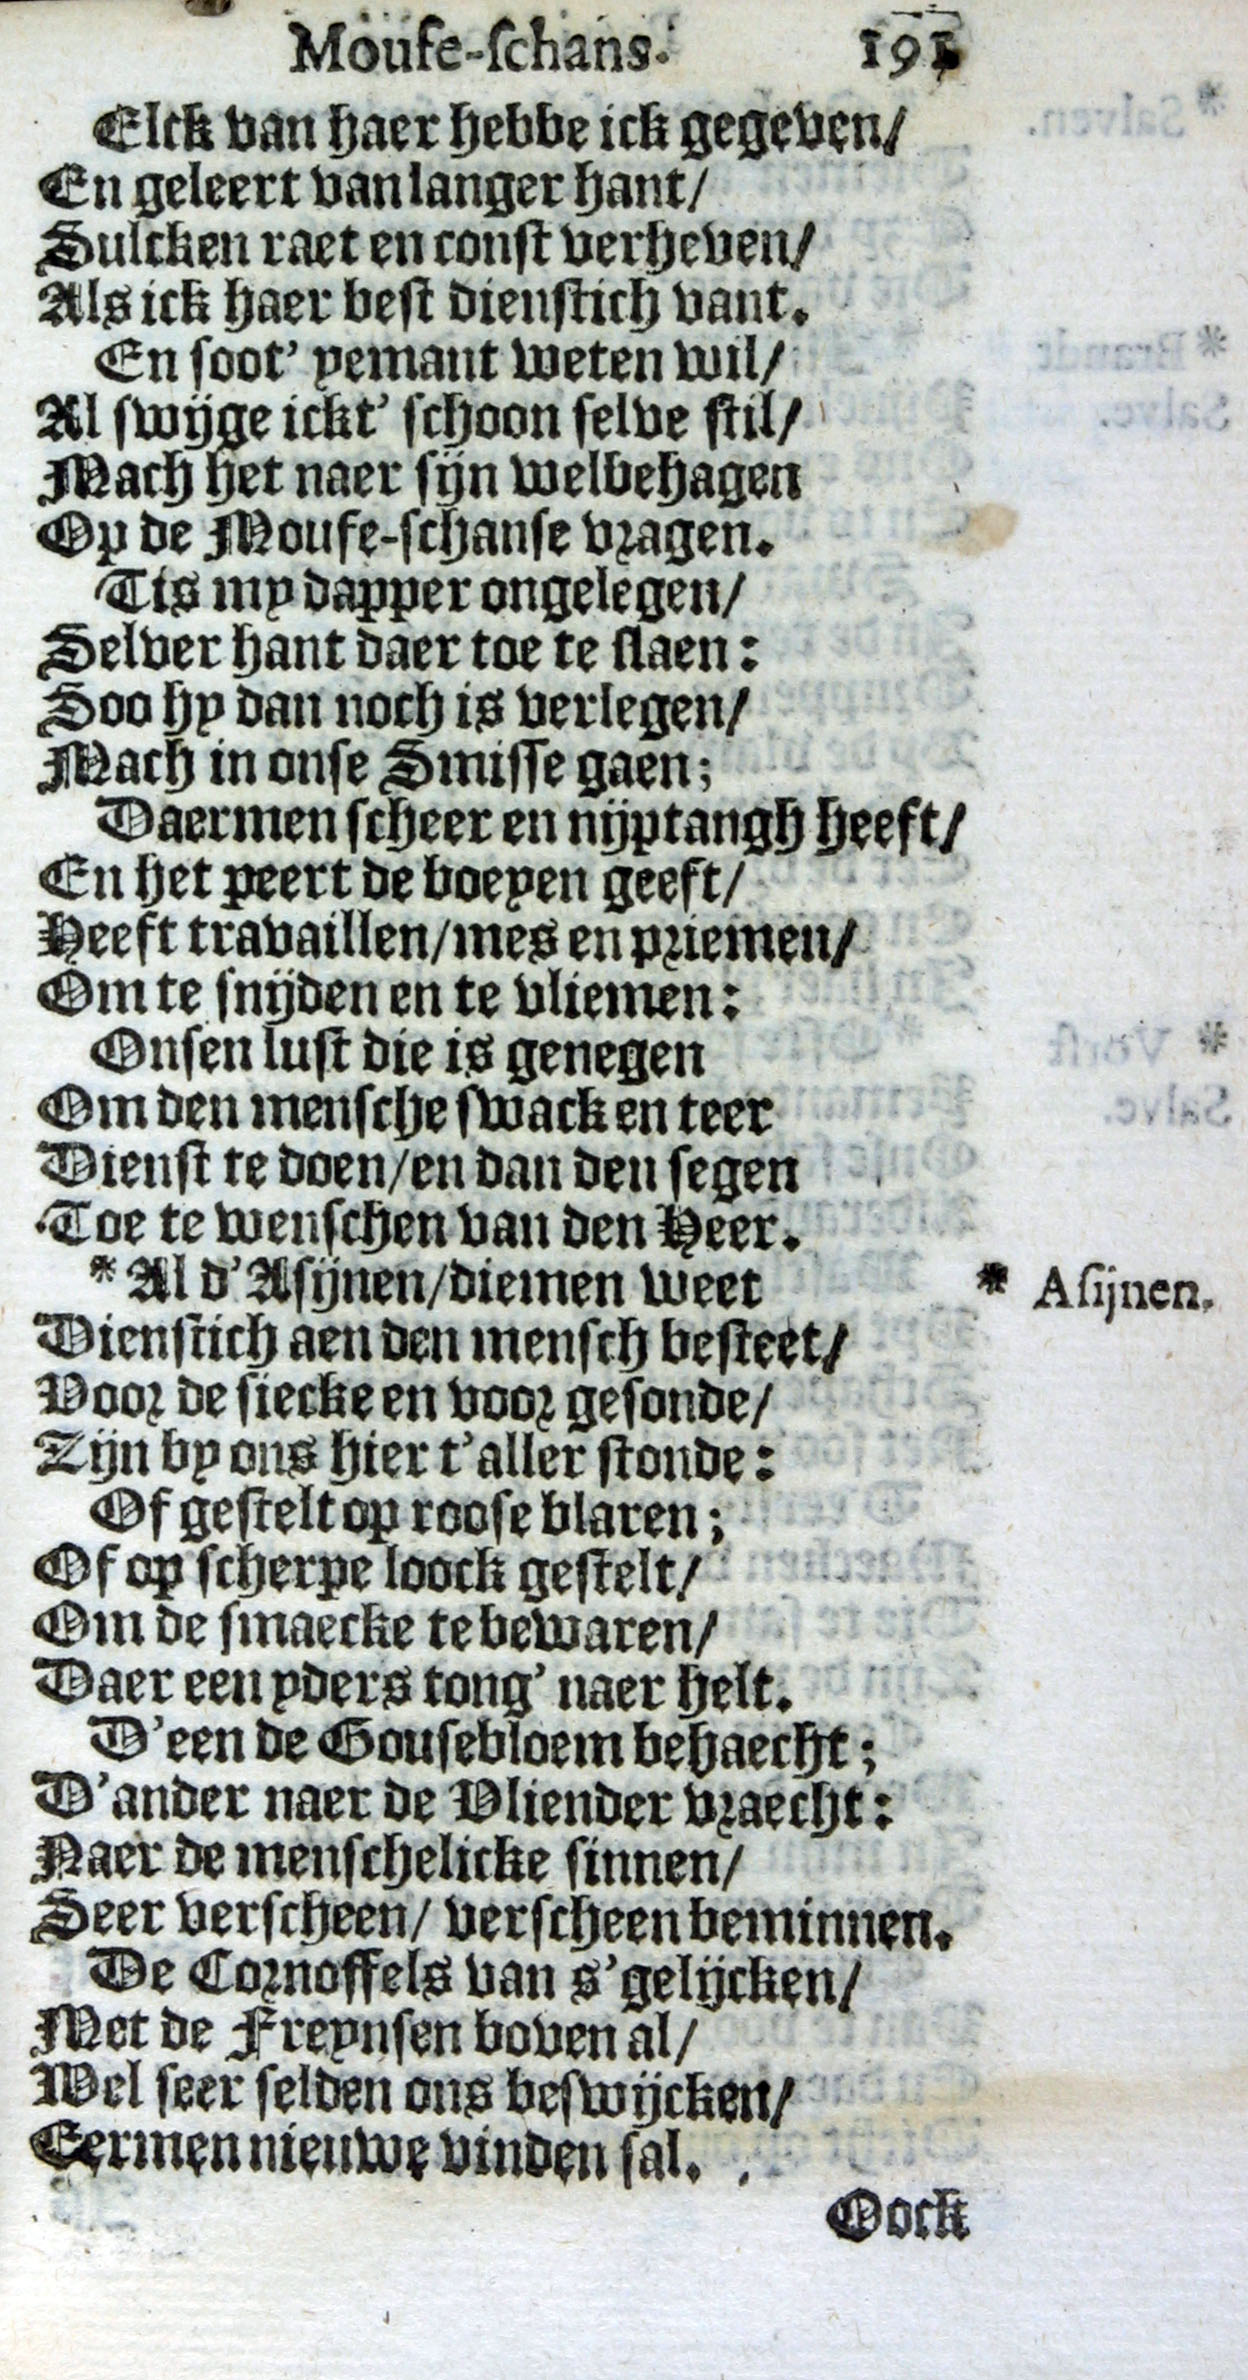 Moufe-schans. 191
Elck van haer hebbe ick gegeven/
En geleert van langer hant/
Sulcken raet en const verheven/
Als ick haer best dienstich vant.
En soot' yemant weten wil/
Al swijge ickt' schoon selve stil/
Mach het naer sijn welbehagen
Op de Moufe-schanse vragen.
Tis my dapper ongelegen/
Selver hant daer toe te slaen:
Soo hy dan noch is verlegen/
Mach in onse Smisse gaen;
Daermen scheer en nijptangh heeft/
En het peert de boeyen geeft/
Heeft travaillen/mes en priemen/
Om te snijden en te vliemen:
Onsen lust die is genegen
Om den mensche swack en teer
Dienst te doen/en dan den segen
Toe te wenschen van den Heer.
* Al d'Asijnen/diemen weet
* Asijnen.
Dienstich aen den mensch besteet/
Voor de siecke en voor gesonde/
Zijn by ons hier t'aller stonde:
Of gestelt op roose blaren;
Of op scherpe loock gestelt/
Om de smaecke te bewaren/
Daer een yders tong' naer helt.
D'een de Gousebloem behaecht;
D'ander naer de Vliender vraecht:
Naer de menschelicke sinnen/
Seer verscheen/ verscheen beminnen.
De Cornoffels van s'gelijcken/
Met de Freynsen boven al/
Wel seer selden ons beswijcken/
Eermen nieuwe vinden sal.
Oock